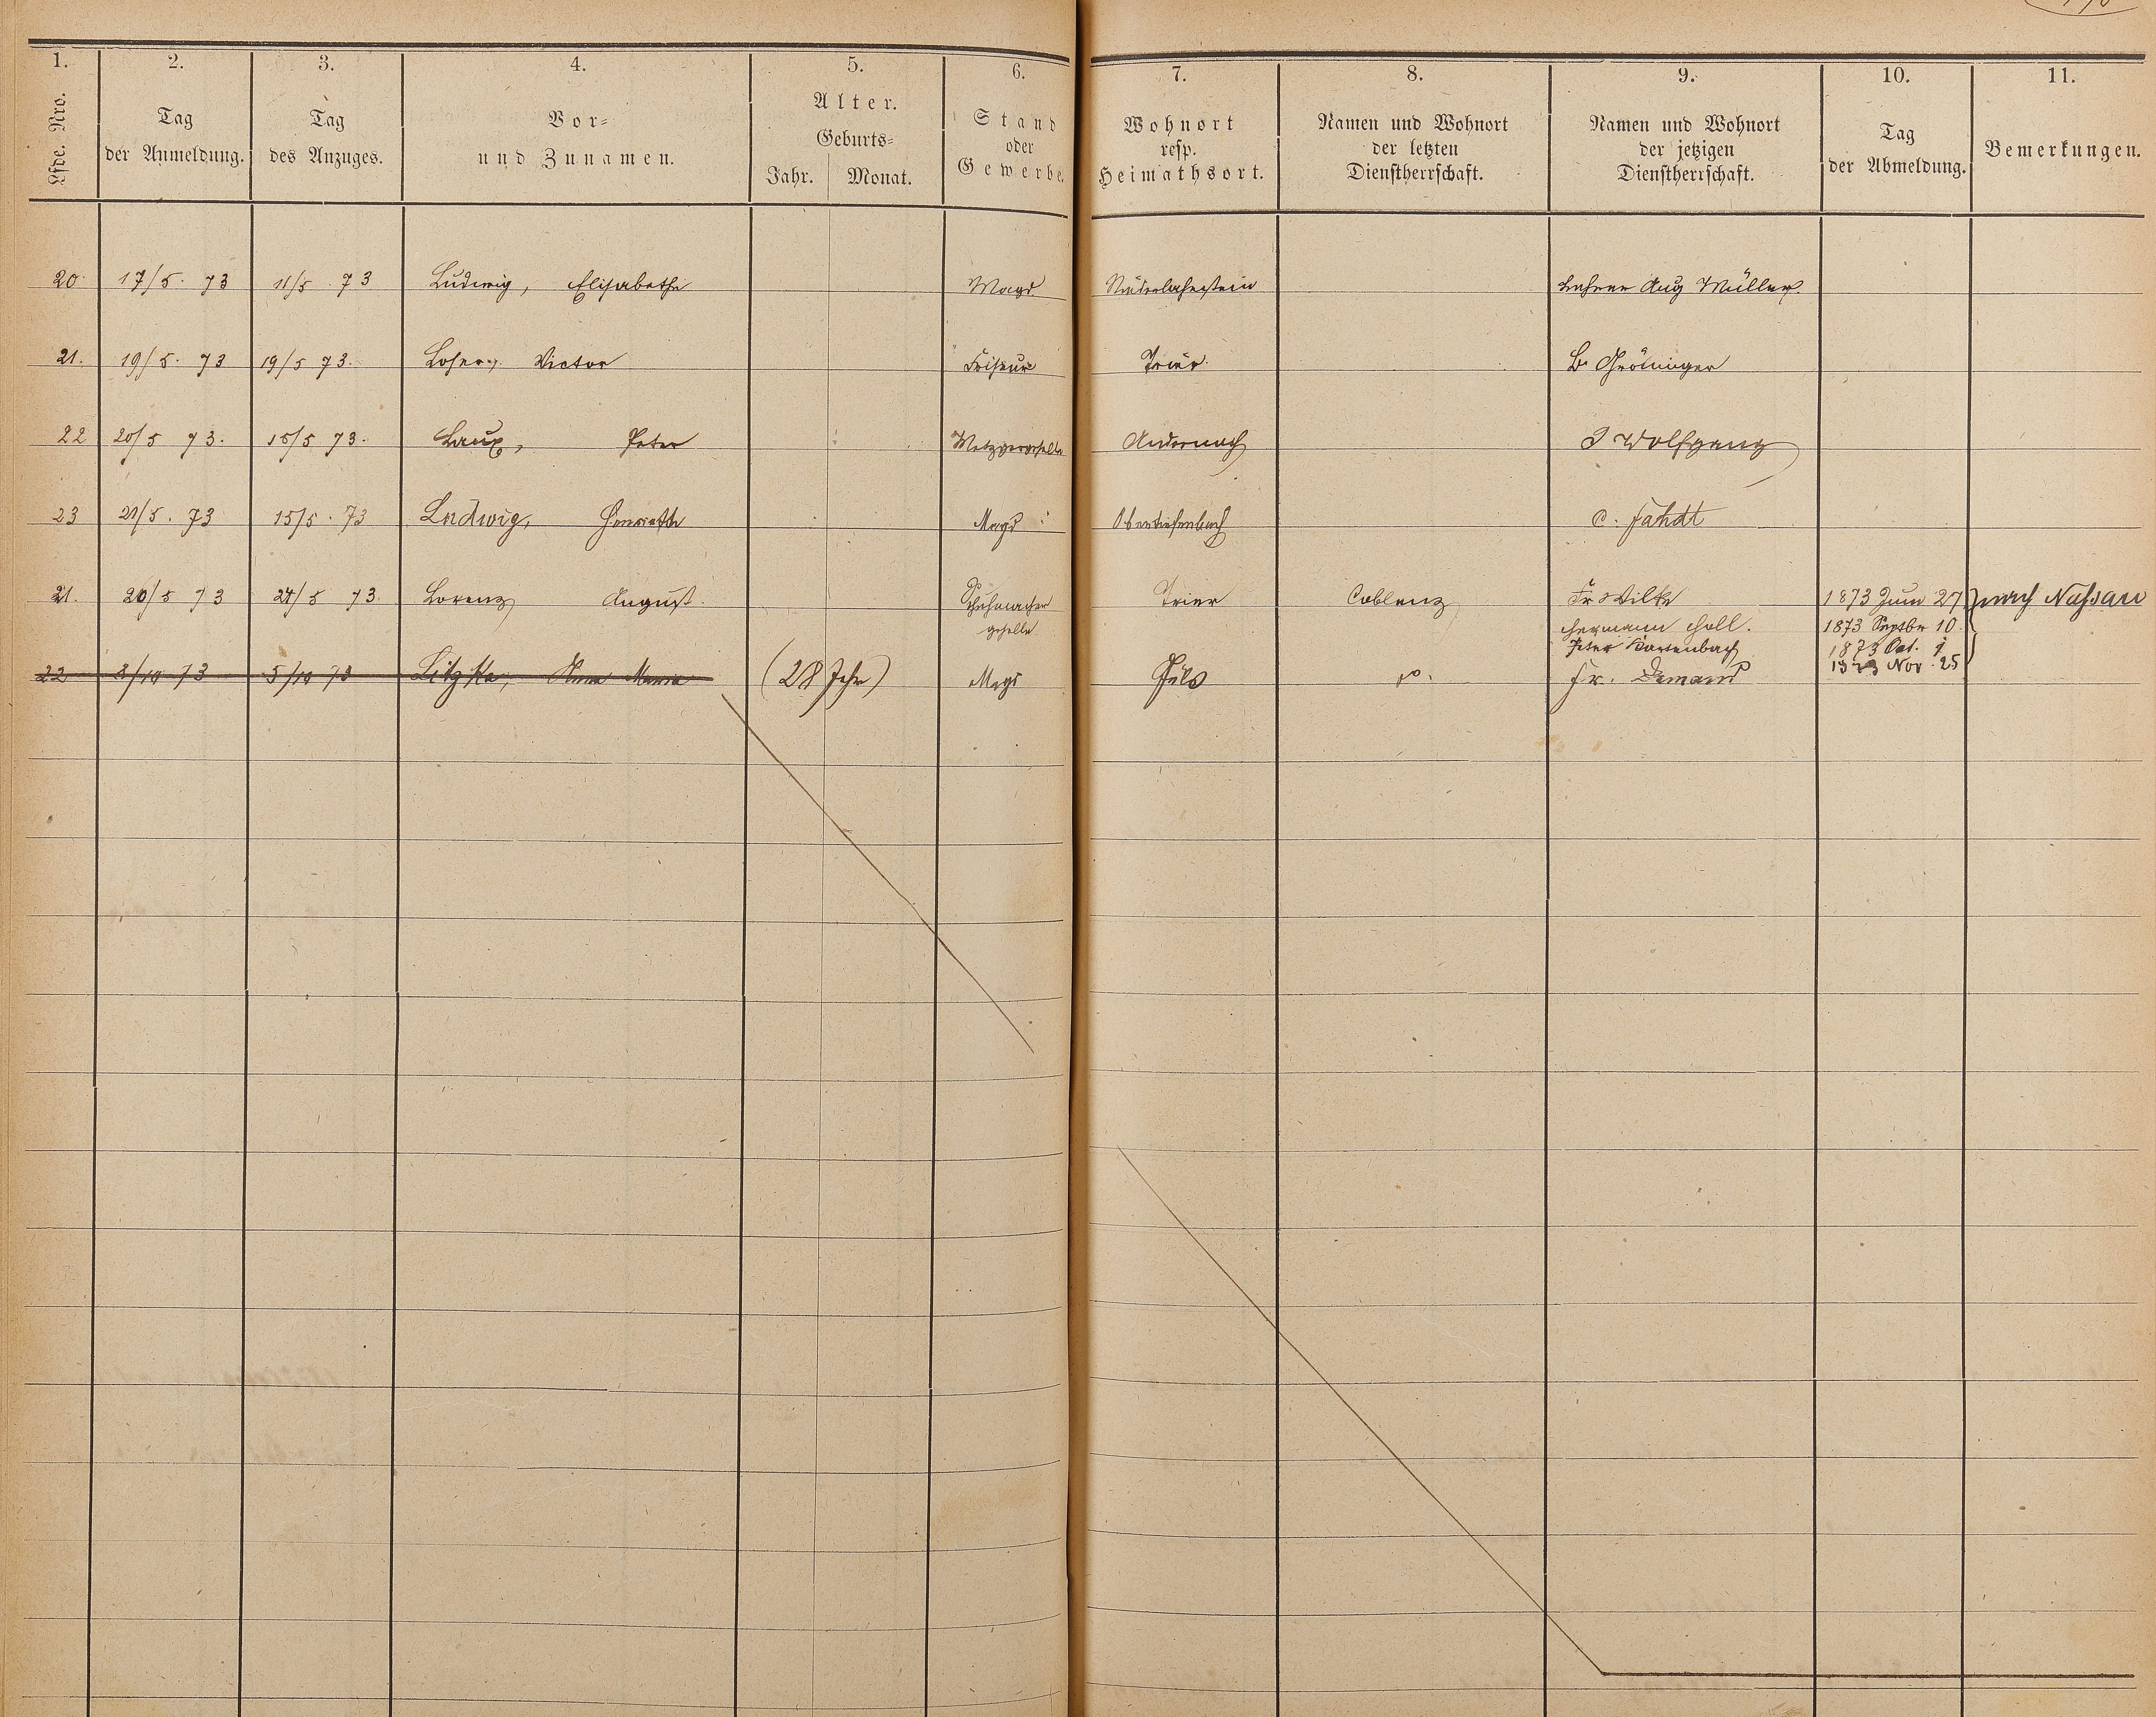 1. 2. 3. 4. 5. 6. 7. 8. 9. 10. 11.
Lfde. Nro.
Tag der Anmeldung.
Tag des Anzuges.
Vor- und Zunamen.
Alter.
Geburts-
Jahr. Monat.
Stand oder Gewerbe.
Wohnort resp. Heimathsort.
Namen und Wohnort der letzten Dienstherrschaft.
Namen und Wohnort der jetzigen Dienstherrschaft.
Tag der Abmeldung.
Bemerkungen.
20 17/5. 73 11/5. 73 Ludwig, Elisabethe Magd Niederlahnstein Lehrer Aug Müller.
21. 19/5. 73 19/5 73. Loser, Victor Friseur Trier. B. Gröninger
22 20/5 73. 15/5 73. Laux, Peter Metzgergeselle Andernach J Wolfgang
23 21/5. 73 15/5. 73 Ludwig, Henriette Magd Obertiefenbach C. Fahdt
21. 26/5 73 24/5 73. Lorenz August. Schuhmacher Trier Coblenz Fr Wilke 1873 Juni 27 nach Nassau
geselle Hermann Holl. 1873 Septbr 10.
Peter 1873 Oct. 1
22 8/10 73 5/10 73 Anna Maria (28 Jahr) Magd Fr. Demand 1873 Nov. 25